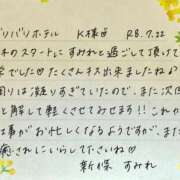 バリバリホテル K様 R8.7.22
木のスタートに すみれと過ごして頂けて
でした たくさんキス出来ましたね♪
周りは凝りすぎていましたので、次
と解して軽くさせてみせます!! これか
事がお忙しくなるようですが、また
癒されにいらして下さいね♡
新保 すみれ